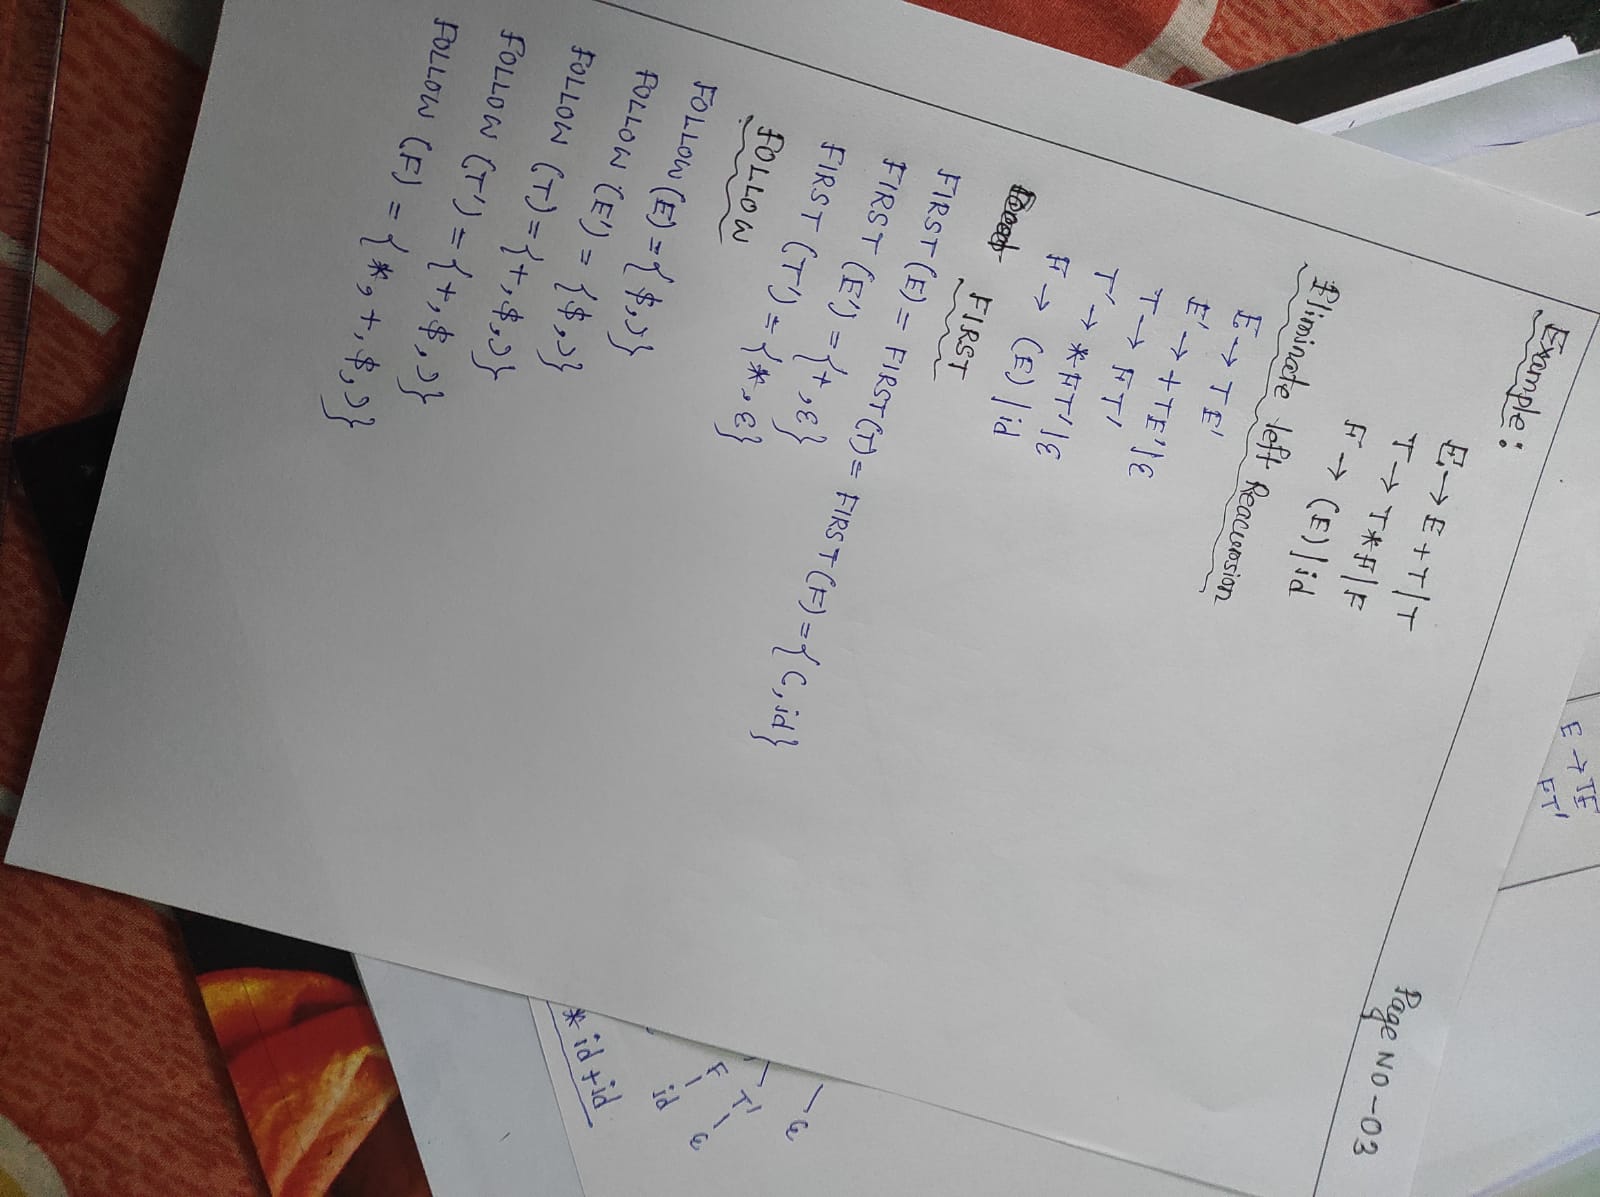 E → TE'
FT'
Page NO-03
Example:
E → E+T|T
T → T*F|F
F → (E)|id
Eliminate left Reacursion
E → TE'
E' → +TE'|ε
T → FT'
T' → *FT'|ε
F → (E)|id
FIRST
FIRST(E) = FIRST(T) = FIRST(F) = {(, id}
FIRST (E') = {+, ε}
FIRST (T') = {*, ε}
FOLLOW
FOLLOW (E) = {$, )}
FOLLOW (E') = {$, )}
FOLLOW (T) = {+, $, )}
FOLLOW (T') = {+, $, )}
FOLLOW (F) = {*, +, $, )}
ε
T' ε
F
id
* id + id